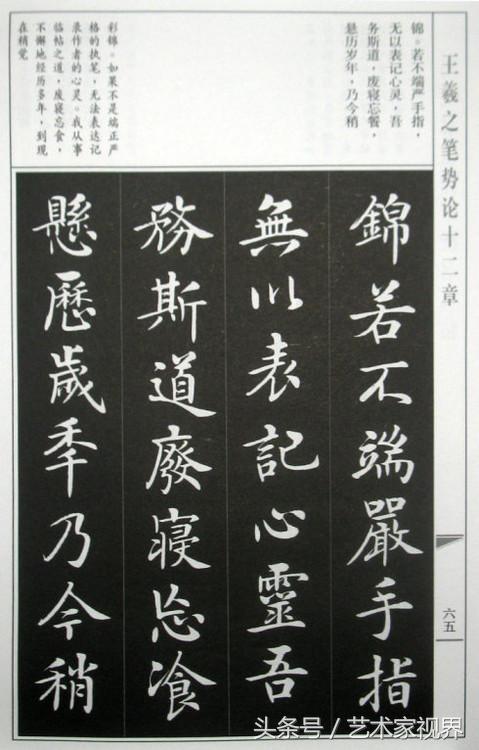 王羲之笔势论十二章
六五
锦。若不端严手指，
无以表记心灵，吾
务斯道，废寝忘餐，
悬历岁年，乃今稍
彩锦。如果不是端正严
格的执笔，无法表达记
录作者的心灵。我从事
临帖之道，废寝忘食，
不懈地经历多年，到现
在稍觉
錦若不端嚴手指
無以表記心靈吾
務斯道廢寢忘飡
懸歷歲秊乃今稍
头条号／艺术家视界